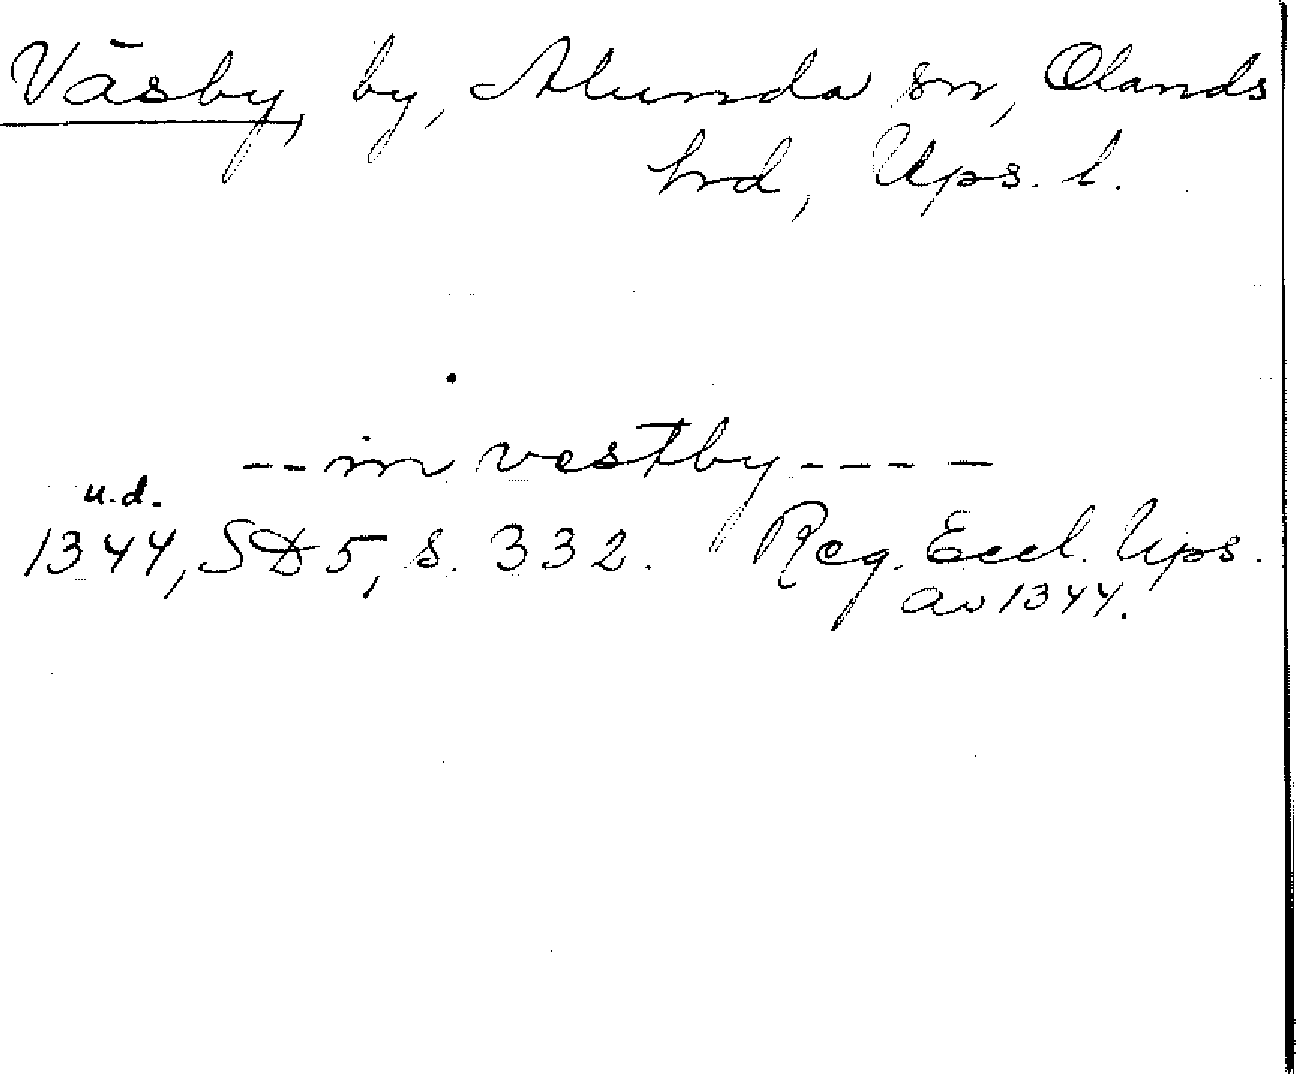 Väsby, by, Alunda sn, Olands
hrd, Ups. l.
-- in vestby ----
u.d.
1344, SD 5, s. 332. Reg. Eccl. Ups.
av 1344.